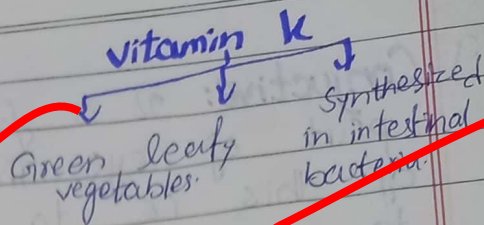 vitamin k
Green leafy
vegetables.
Synthesized
in intestinal
bacteria.